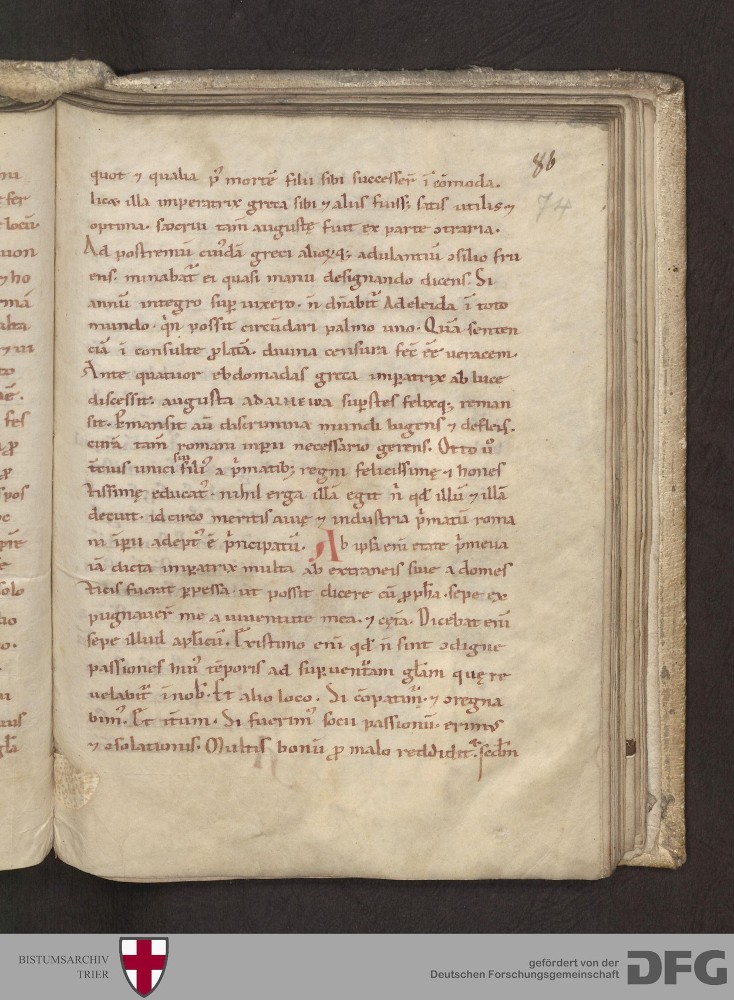 86
74
quot ⁊ qualia p̄ mortē filii sibi successer̄ ī cōmoda.
licæ illa imperatrix greca sibi ⁊ aliis fuiss; satis utilis ⁊
optima. socrui tam̄ augustę fuit ex parte ↄtraria.
Ad postremū cuiᵈdā greci alioꝝq; adulantiū ↄsilio fru
ens. minabat᷑ ei quasi manu designando dicens. Si
annū integro suꝑ uixero. n̄ dn̄abit᷑ Adeleida ī toto
mundo. qn̄ possit circūdari palmo uno. Quā senten
ciā ī consulte ꝓlatā. diuina censura fec̄ ēē ueracem.
Ante quatuor ebdomadas greca imꝑatrix ab luce
discessit; augusta ADALHEIDA suꝑstes felixq; reman
sit. Ꝑmansit aū discrimina mundi lugens ⁊ deflens.
curā tam̄ romani imꝑii necessario gerens. Otto ū
t̄cius unici sui filiꝰ a p̄matib; regni felicissimę ⁊ hones
tissimę educat᷑. nihil erga illā egit n̄ qđ illū ⁊ illā
decuit. idcirco meritis auię ⁊ industria p̄matū roma
ni īꝑii adeptꝰ ē p̄ncipatū. Ab ipsa eni etate p̄meua
iā dicta imꝑatrix multa ab extraneis siue a domes
ticis fuerit ꝑpessa. ut possit dicere cū ꝓph̄a. sepe ex
pugnauer̄ me a iuuentute mea. ⁊ cęt̄a. Dicebat enī
sepe illud apl̄icū. Existimo enī qđ n̄ sint ↄdigne
passiones huiꝰ tēporis ad suꝑuent᷑am gl̄am quę re
uelabit᷑ ī nob̄. Et alio loco. Si cōpatim᷑. ⁊ ↄregna
bimꝰ. Et it̄um. Si fuerimꝰ socii passionū. erimus
⁊ ↄsolationis. Multis bonū ꝓ malo reddidit. scđm
BISTUMSARCHIV
TRIER
gefördert von der
Deutschen Forschungsgemeinschaft
DFG